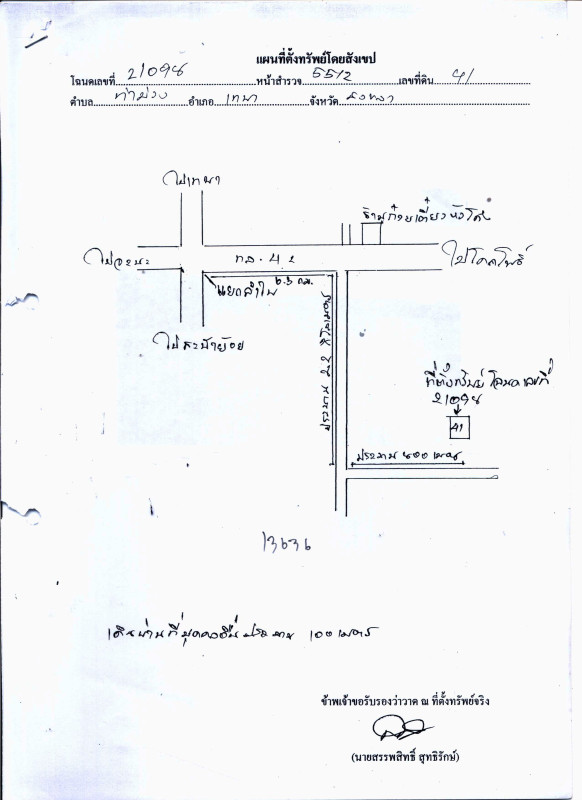 แผนที่ตั้งทรัพย์โดยสังเขป
โฉนดเลขที่ 21098 หน้าสำรวจ 5512 เลขที่ดิน 41
ตำบล ท่าม่วง อำเภอ เทพา จังหวัด สงขลา
ไปเทพา
ร้านก๋วยเตี๋ยว
ไปจะนะ
ทล. 42
ไปโคกโพธิ์
แยกลำไพ
6.3 กม.
ไปสะบ้าย้อย
ประมาณ 2.2 กิโลเมตร
ที่ตั้งทรัพย์ โฉนดเลขที่
21098
41
ประมาณ 400 เมตร
13636
เดินผ่านที่บุคคลอื่นประมาณ 100 เมตร
ข้าพเจ้าขอรับรองว่าวาด ณ ที่ตั้งทรัพย์จริง
(นายสรรพสิทธิ์ สุทธิรักษ์)